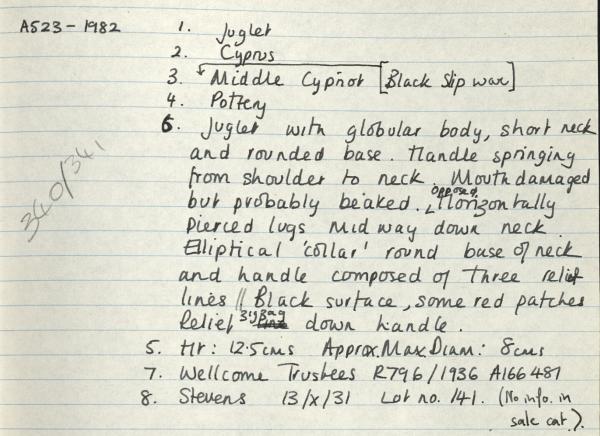 A523 - 1982
1. Juglet
2. Cyprus
3. Middle Cypriot [Black Slip ware]
4. Pottery
6. Juglet with globular body, short neck
and rounded base. Handle springing
from shoulder to neck. Mouth damaged
but probably beaked. opposed Horizontally
pierced lugs midway down neck.
Elliptical 'collar' round base of neck
and handle composed of three relief
lines // Black surface, some red patches
Relief zigzag down handle.
5. Ht: 12.5cms Approx. Max. Diam: 8cms
7. Wellcome Trustees R796/1936 A166481
8. Stevens 13/x/31 Lot no. 141. (No info. in
sale cat.).
340/341